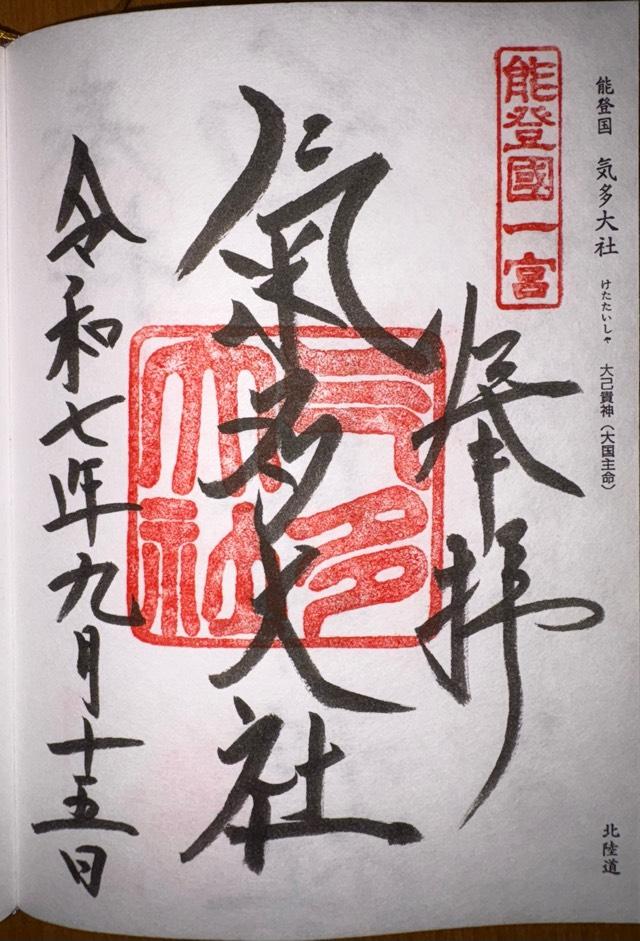 能登国 気多大社 けたたいしゃ 大己貴神(大国主命)
北陸道
能登國一宮
奉拝
氣多大社
气多大社
令和七年九月十五日